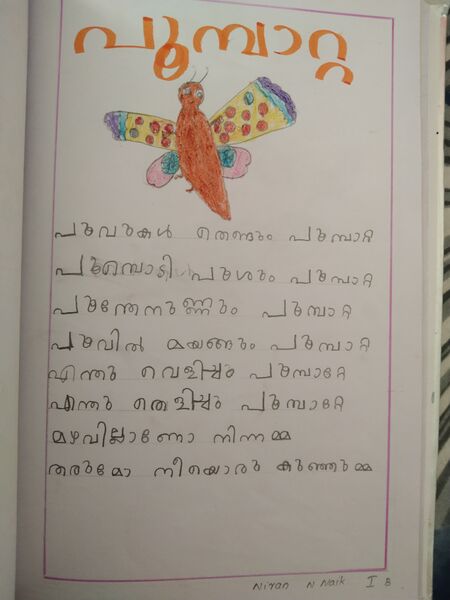 പൂമ്പാറ്റ
പൂവുകൾ തെണ്ടും പൂമ്പാറ്റ
പൂമ്പൊടി പൂശും പൂമ്പാറ്റ
പൂന്തേനുണ്ണും പൂമ്പാറ്റ
പൂവിൽ മയങ്ങും പൂമ്പാറ്റ
എന്തു വെളിപ്പം പൂമ്പാറ്റേ
എന്തു തെളിപ്പം പൂമ്പാറ്റേ
മഴവില്ലാണോ നിന്നമ്മ
തരുമോ നീയൊരു കുഞ്ഞുമ്മ
Niran N Naik I B